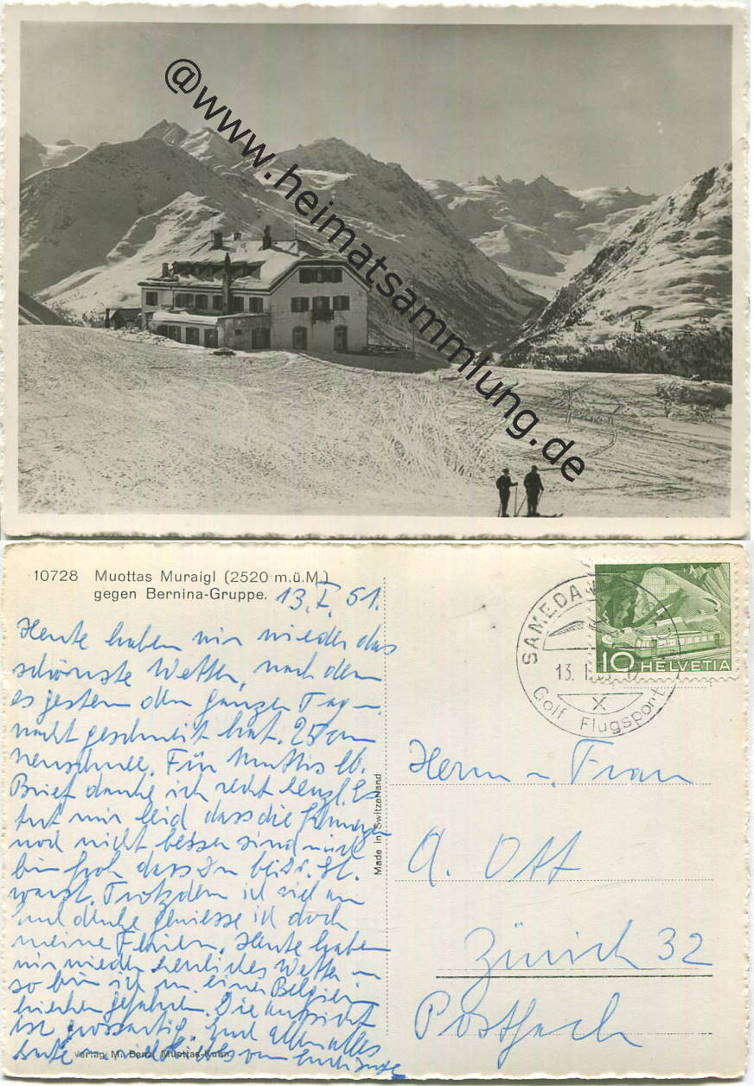 @www.heimatsammlung.de
10728 Muottas Muraigl (2520 m.ü.M.)
gegen Bernina-Gruppe.
13. I. 51.
Heute haben wir wieder das
schönste Wetter, nach dem
es gestern den ganzen Tag u.
nacht geschneit hat. 25 cm
neuschnee. Für Muttis lb.
Brief danke ich recht herzl. Es
tut mir leid dass die
noch nicht besser sind und
bin froh dass Du bei Dr. St.
warst. Trotzdem ich viel an
Euch denke geniesse ich doch
meine Ferien. Heute haben
wir wieder herrliches Wetter u.
so bin ich m. einem Belgier
hierher gefahren. Die Aussicht
ist grossartig. Euch allen alles
Gute von Eurer
Verlag M. Benz, Muottas-Kulm
Made in Switzerland
SAMEDAN
13. I.
Golf Flugsport
10 HELVETIA
Herrn u. Frau
A. Ott
Zürich 32
Postfach